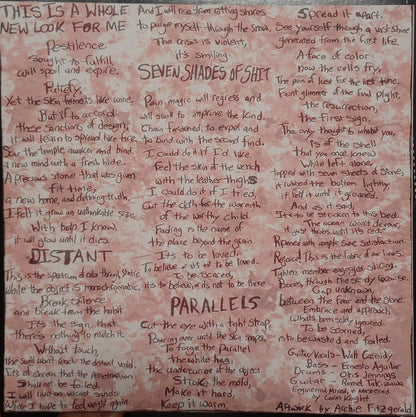 THIS IS A WHOLE
NEW LOOK FOR ME
Pestilence
sought to fulfill
coil spoil and expire.
Putrefy,
Yet the skin ferments like wine.
But if to accord
these sanctions of design,
it will learn to spread like fire.
the temple, awaken and bind
a new mind with a fresh hide.
A precious stone that was given
fit time,
a new home, and detering truth,
I felt it grow an unthinkable size.
With help I know
it will grow until it dies.
DISTANT
This is the spectrum of color found, static
While the object is monochromatic,
Break silence
and break from the habit.
It's the sign that
there's nothing to match it.
Without touch,
the soil won't reach the distant void.
It's of course that the penetration
Shall not be foiled.
I will live on vacant sands
When I hope to feel weight again
And I will rise from rotting shores
to purge myself through the smoke
The crisis is violent,
it's smiling.
SEVEN SHADES OF SHIT
Pain magic will regress and
will suit to improve the kind.
Chain fashioned, to expel and
to bind with the second find.
I could do it if I'd like.
Feel the skin of the wench
with the leather thighs
I Could do it if I tried.
Cut the cloth for the warmth
of the worthy child.
Fading is the name of
the place beyond the grain.
It's to be loved.
To believe it is not to be loved.
To be scared,
it's to believe, it's not to be there
PARALLELS
Cut the eye with a tight strap,
Pouring over until the skin snaps.
To forge the parallel
the white hag,
the undercurrent of the object.
Stroke the mold,
Make it hard,
Keep it warm,
Spread it apart.
See yourself through a vast shine
generated from the first life.
A face of color
How the cells fry.
The pain of lust for the last time.
Faint glimmer of the final plight.
the resurrection,
the first sign.
The only thought to inhabit you,
Is of the shell
that you once knew
While left above,
tapped with seven sheets of Stone,
it rubbed the bottom lightly,
it felt it until it groaned.
And as it said,
It's to be stricken to thy bed.
The ocean won't devour,
it just holds until its dead.
Ripened with ample sure satisfaction.
Rejoice! This is the fabric of our lives.
member engorged slicing.
Boom through the sky for because
God unknown,
between the fear and the stone.
Embrace and approach
(what's born sick) ignored
To be scorned,
is to be wasted and foiled.
Guitar/Vocals - Walt Cassidy
Bass - Ernesto Aguilar
Drums - Otis Jennings
Guitar - Romed
Engineered, Mixed, & Mastered
by Colin Knight
Artwork by Archie Fitzgerald